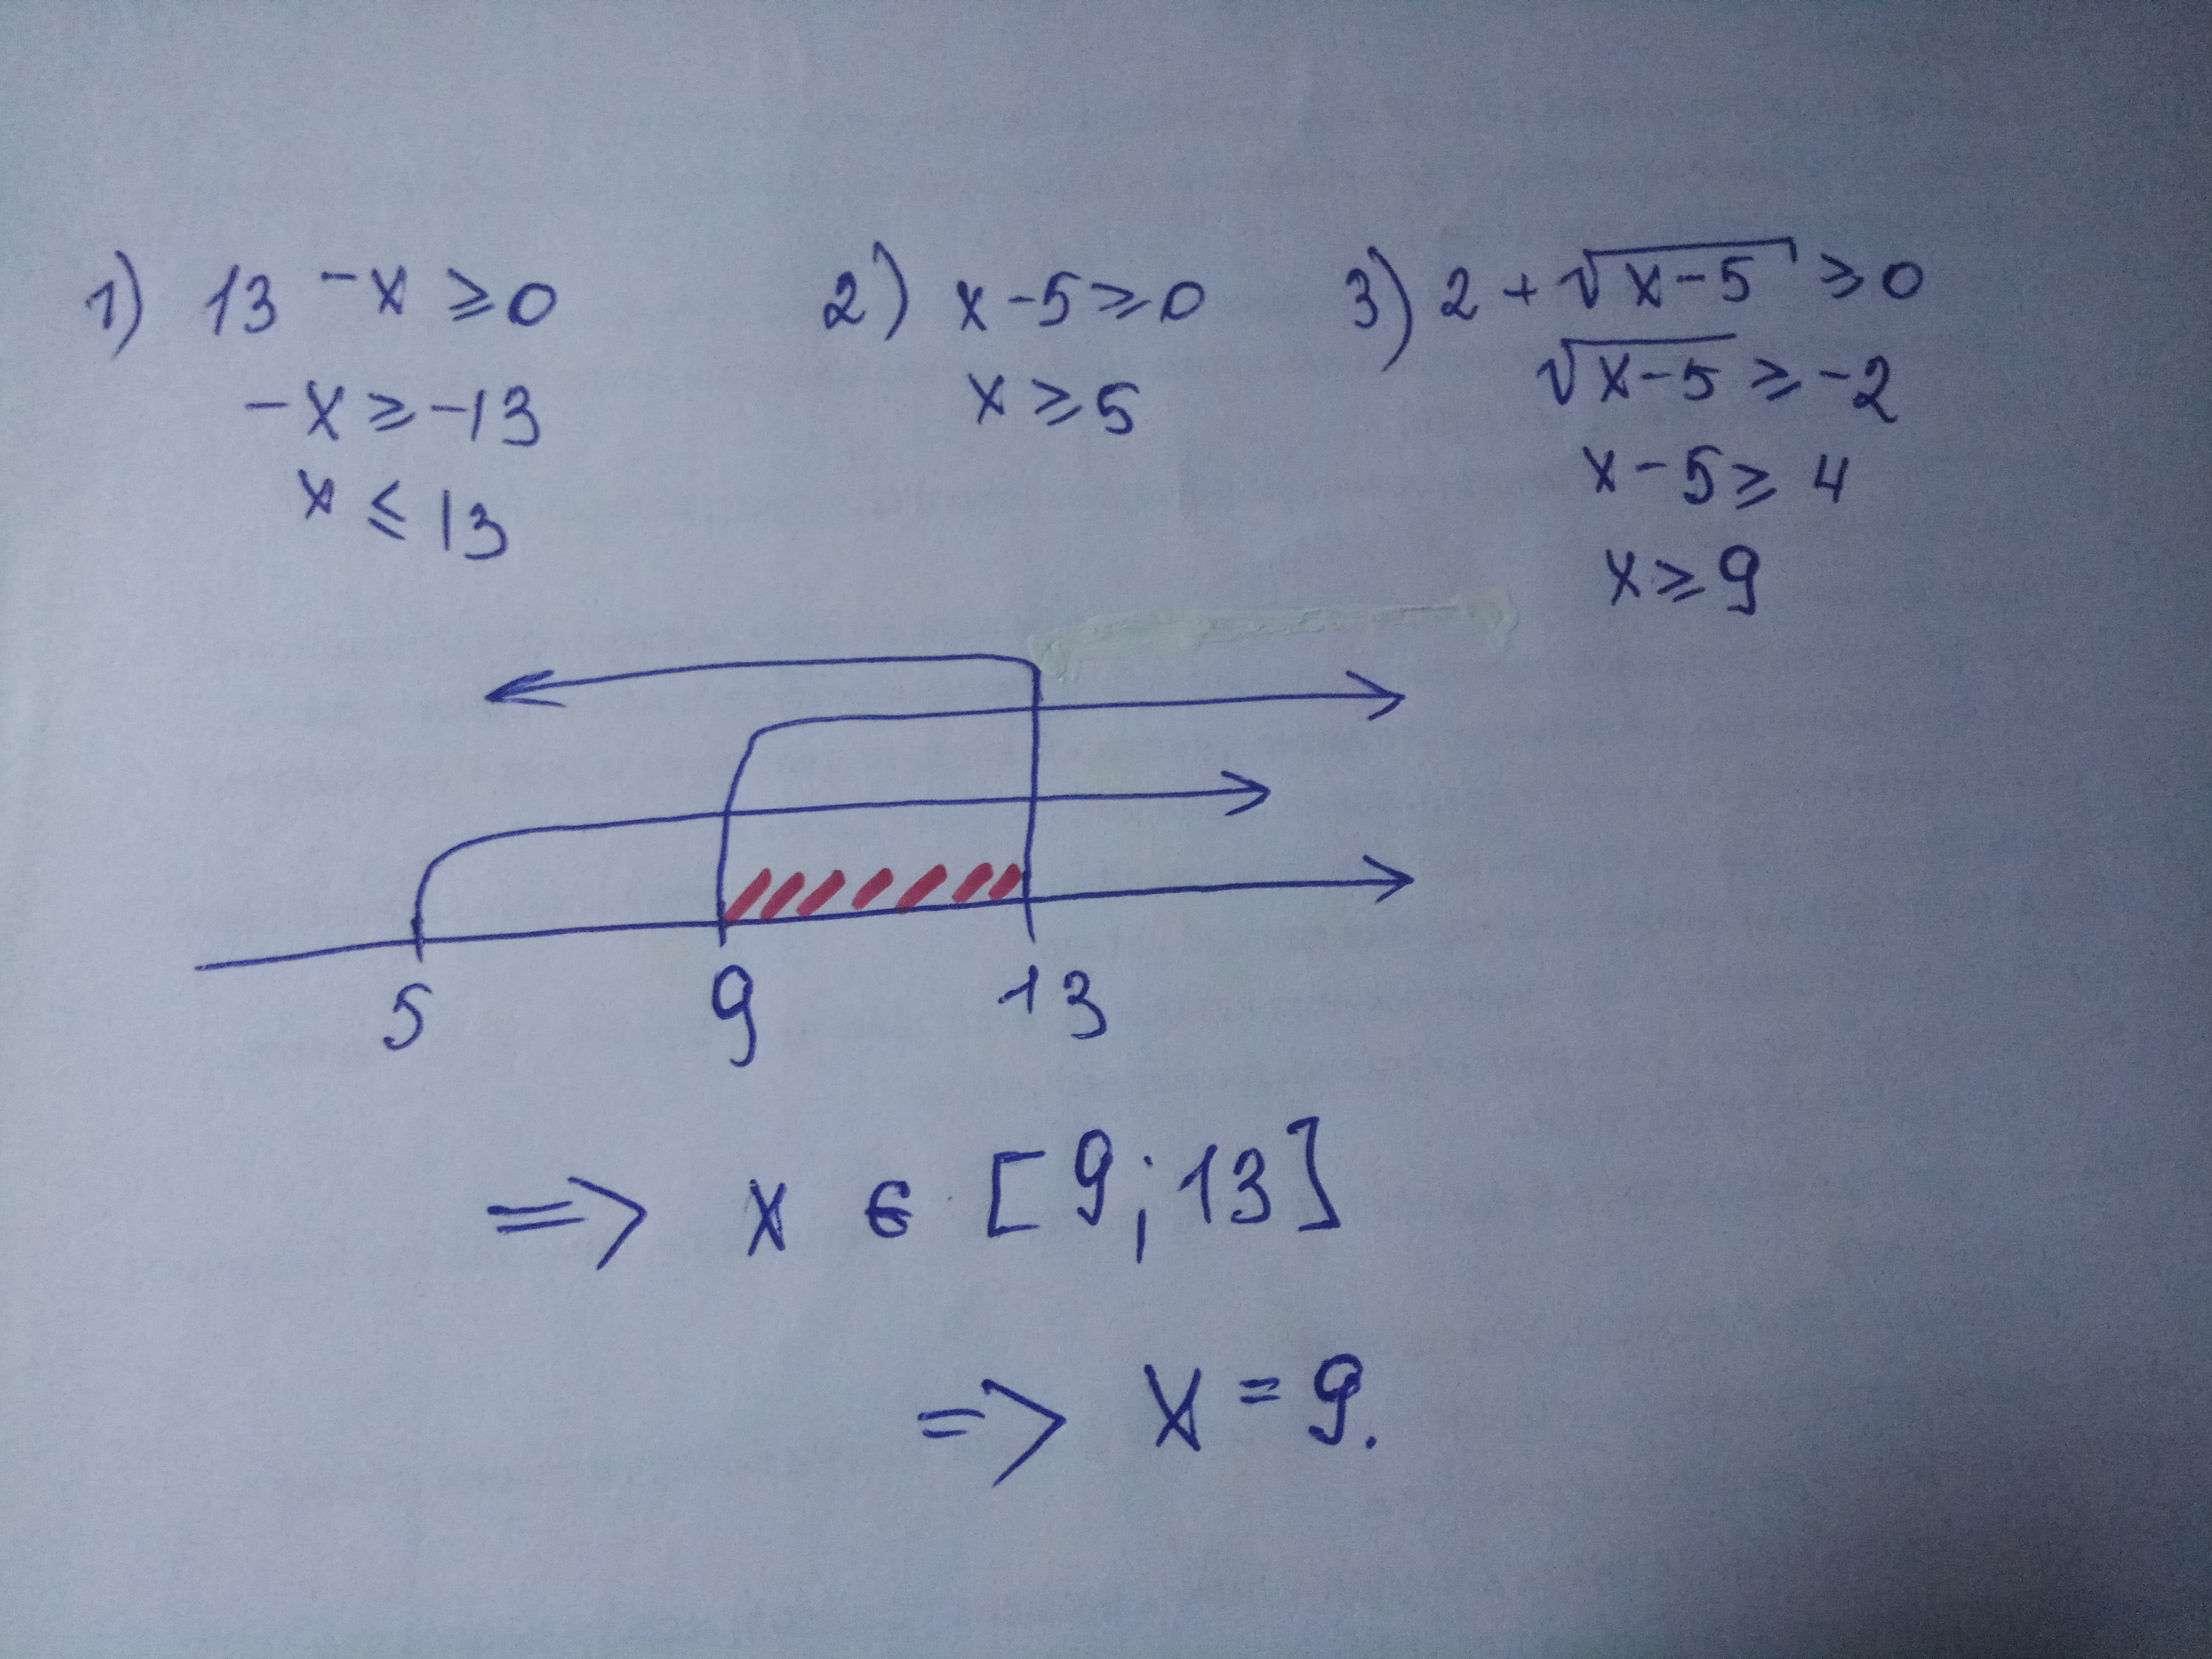 1) 13 -x ≥ 0
-x ≥ -13
x ≤ 13
2) x-5 ≥ 0
x ≥ 5
3) 2 + √(x-5) ≥ 0
√(x-5) ≥ -2
x-5 ≥ 4
x ≥ 9
5 9 13
=> x ∈ [9;13]
=> x = 9.